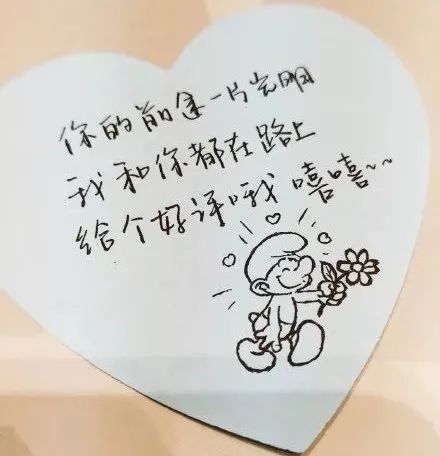 你的前途一片光明
我和你都在路上
给个好评哦 嘻嘻~~